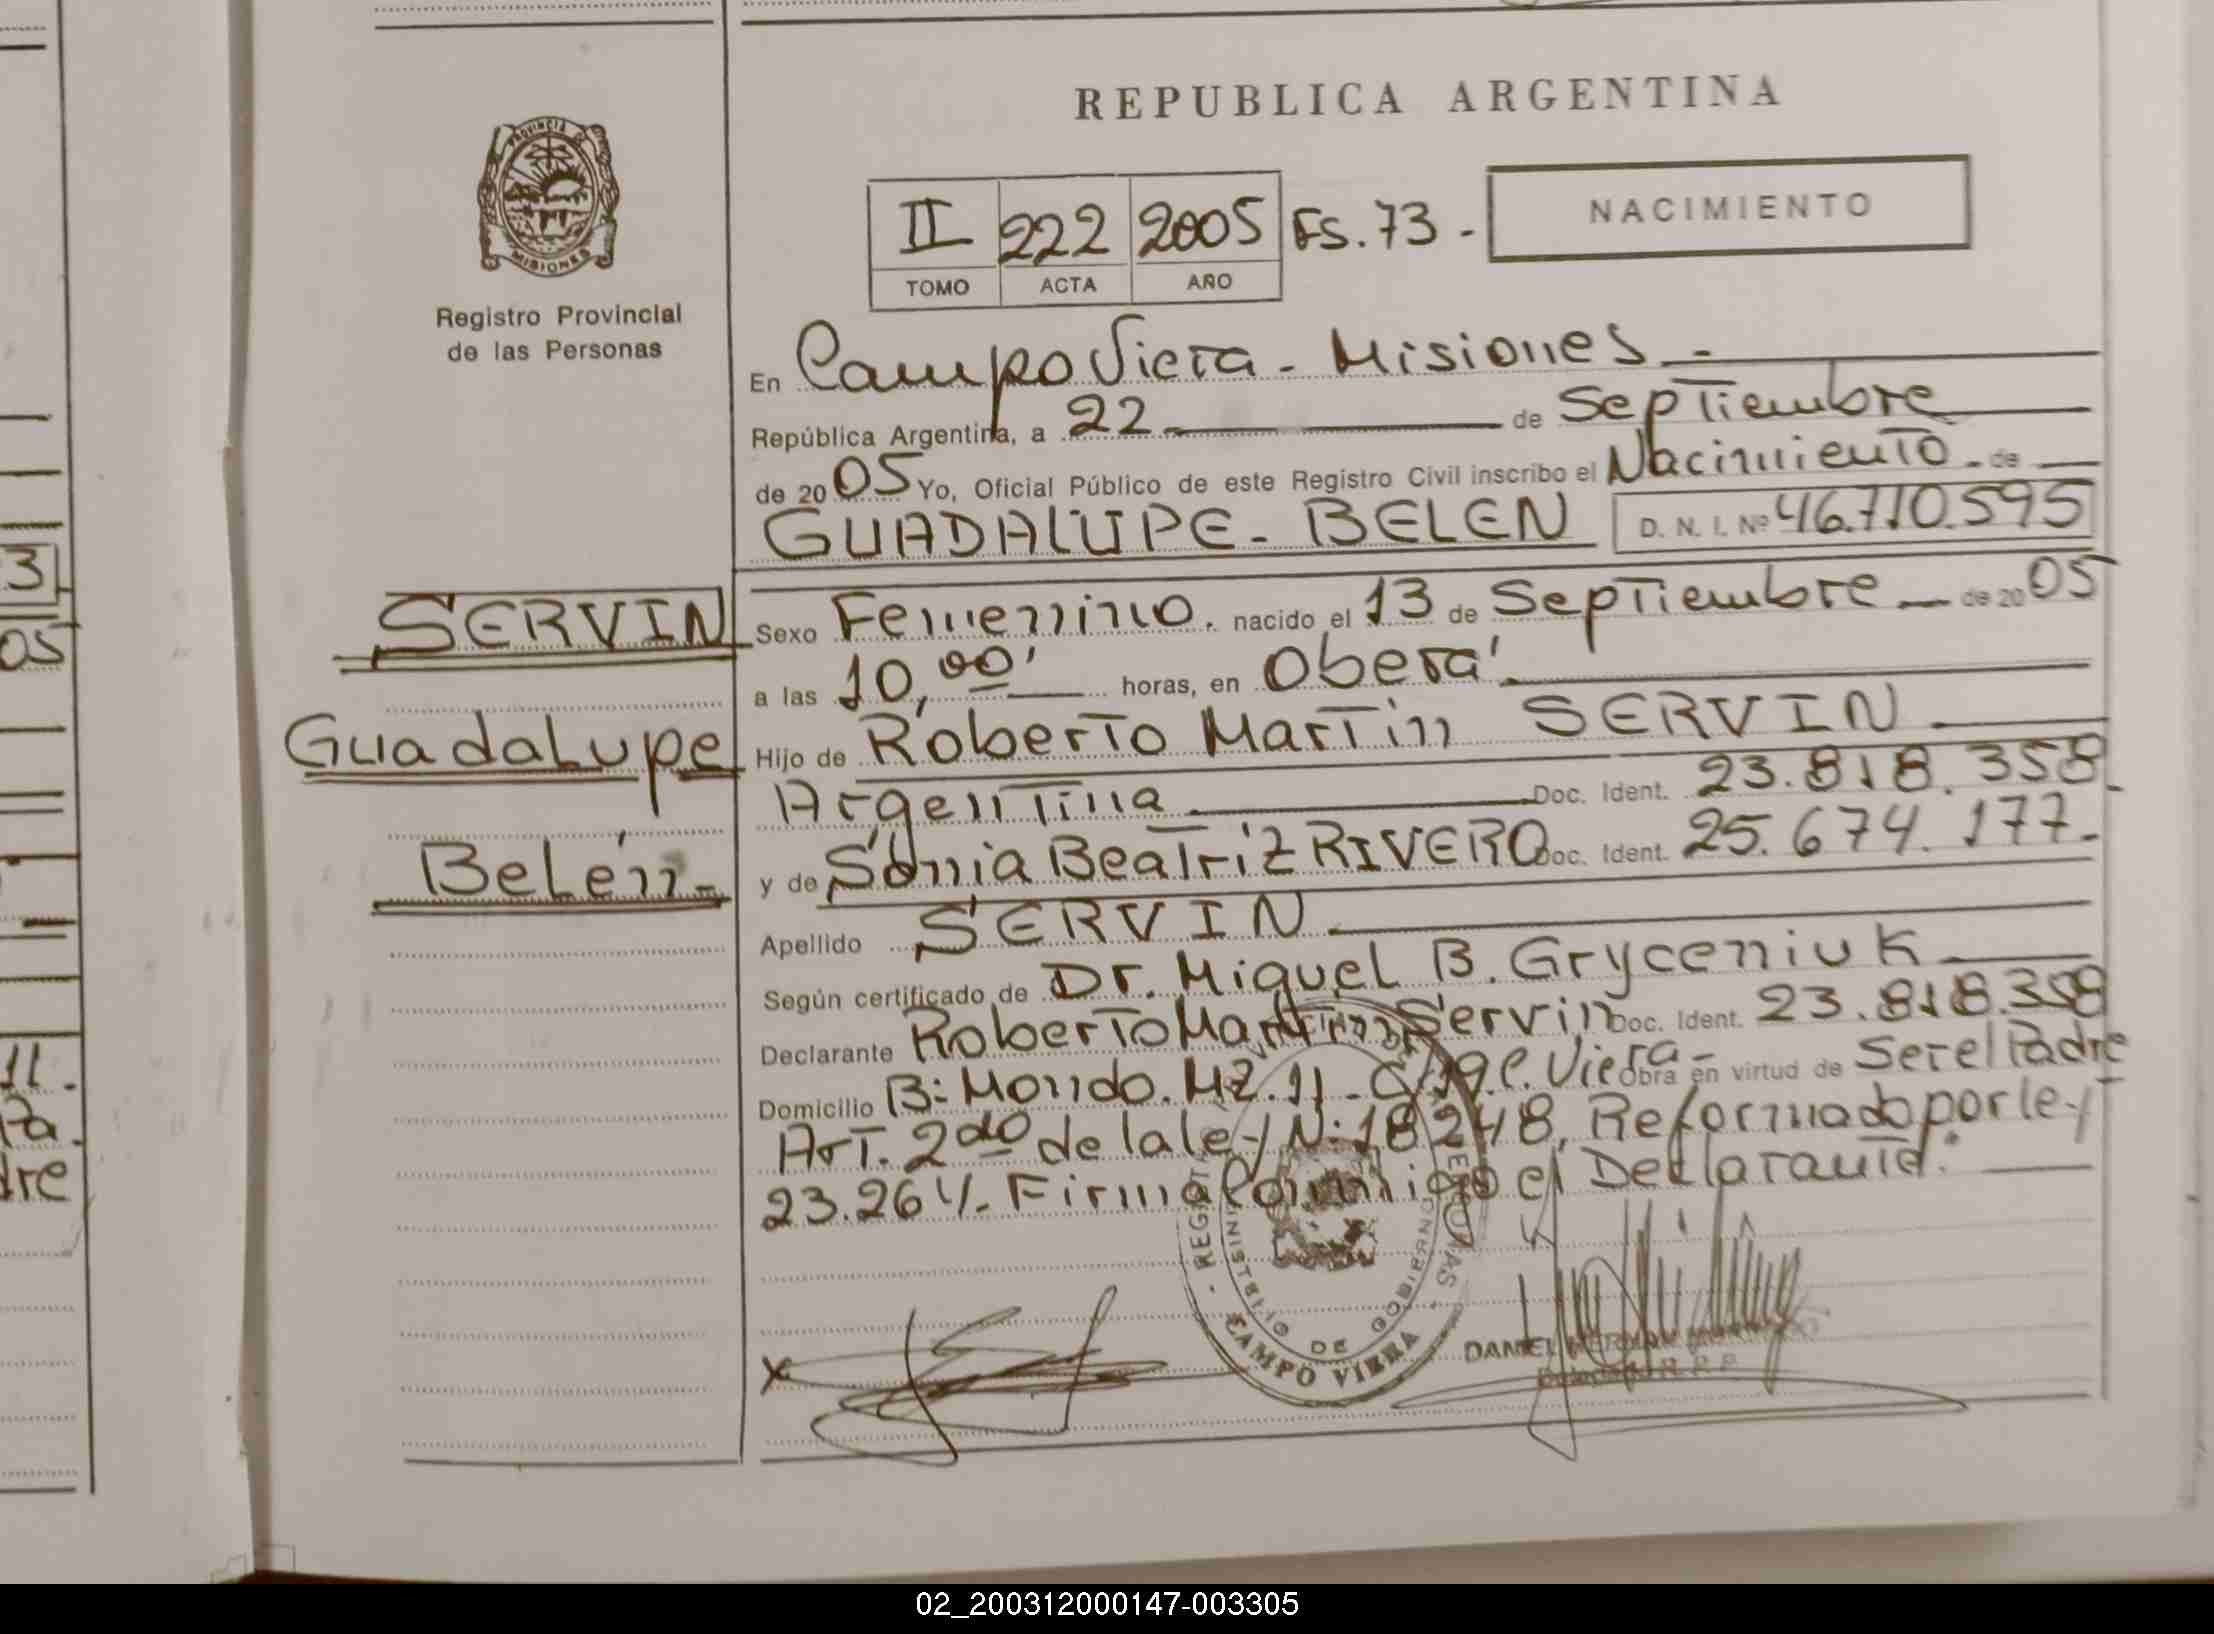 REPUBLICA ARGENTINA
PROVINCIA DE
MISIONES
Registro Provincial
de las Personas
II 222 2005 Fs. 73 -
TOMO ACTA AÑO
NACIMIENTO
En Campo Viera - Misiones -
República Argentina, a 22 de Septiembre
de 2005 Yo, Oficial Público de este Registro Civil inscribo el Nacimiento - de
GUADALUPE - BELEN D. N. I. Nº 46.710.595
SERVIN
Guadalupe
Belén -
Sexo Femenino. nacido el 13 de Septiembre de 2005
a las 10,00' horas, en Oberá
Hijo de Roberto Martin SERVIN
Argentina Doc. Ident. 23.818.358
y de Sonia Beatriz RIVERO Doc. Ident. 25.674.177-
Apellido SERVIN
Según certificado de Dr. Miguel B. Gryceniuk
Declarante Roberto Martin Servin Doc. Ident. 23.818.358
Domicilio B: Mondo. MZ. 11 - C. Viera - obra en virtud de Ser el Padre
Art. 2do de la ley N: 18248, Reformado por ley
23.264 - Firma Conmigo el Declarante.
MINISTERIO DE GOBIERNO
CAMPO VIERA
DANIEL
3
05
11.
Pa.
dre
02_200312000147-003305